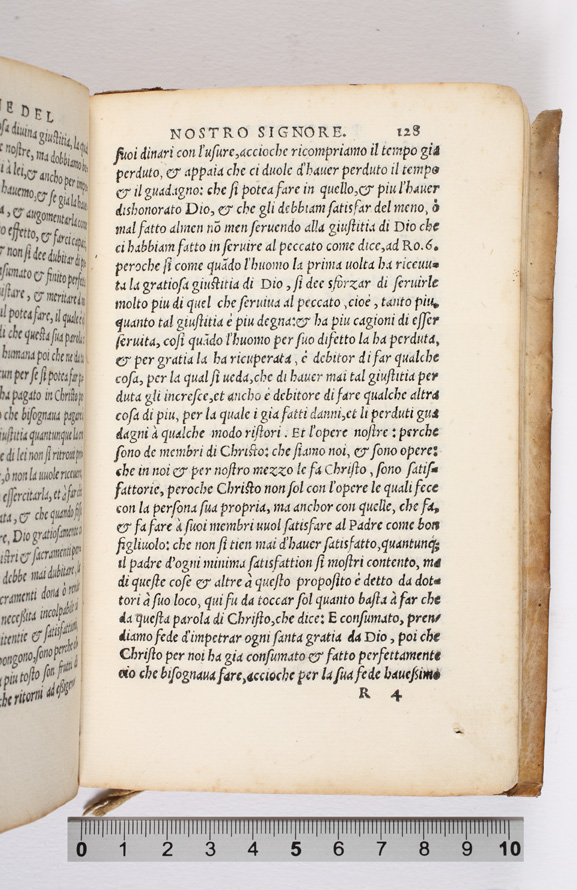 NOSTRO SIGNORE. 128
ſuoi dinari con l'uſure, accioche ricompriamo il tempo gia
perduto, & appaia che ci duole d'hauer perduto il tempo
& il guadagno: che ſi potea fare in quello, & piu l'hauer
dishonorato Dio, & che gli debbiam ſatisfar del meno, ò
mal fatto almen nō men ſeruendo alla giuſtitia di Dio che
ci habbiam fatto in ſeruire al peccato come dice, ad Ro. 6.
peroche ſi come quādo l'huomo la prima uolta ha riceuu-
ta la gratioſa giuſtitia di Dio, ſi dee sforzar di ſeruirle
molto piu di quel che ſeruiua al peccato, cioè, tanto piu,
quanto tal giuſtitia è piu degna: & ha piu cagioni di eſſer
ſeruita, coſi quādo l'huomo per ſuo difetto la ha perduta,
& per gratia la ha ricuperata, è debitor di far qualche
coſa, per la qual ſi ueda, che di hauer mai tal giuſtitia per
duta gli increſce, et ancho è debitore di fare qualche altra
coſa di piu, per la quale i gia fatti danni, et li perduti gua
dagni à qualche modo riſtori. Et l'opere noſtre: perche
ſono de membri di Chriſto: che ſiamo noi, & ſono opere:
che in noi & per noſtro mezzo le fa Chriſto, ſono ſatiſ-
fattorie, peroche Chriſto non ſol con l'opere le quali fece
con la perſona ſua propria, ma anchor con quelle, che fa,
& fa fare à ſuoi membri uuol ſatisfare al Padre come bon
figliuolo: che non ſi tien mai d'hauer ſatisfatto, quantunq;
il padre d'ogni minima ſatisfattion ſi moſtri contento, ma
di queste coſe & altre à queſto propoſito è detto da dot-
tori à ſuo loco, qui fu da toccar ſol quanto baſta à far che
da queſta parola di Chriſto, che dice: E conſumato, pren-
diamo fede d'impetrar ogni ſanta gratia da Dio, poi che
Chriſto per noi ha gia conſumato & fatto perfettamente
cio che biſognaua fare, accioche per la ſua fede haueßimo
R 4
NE DEL
oſa diuina giuſtitia, la
e noſtre, ma dobbiamo
i à lei, & ancho per
hauemo, & ſe gia la
a, & augumentarla
o effetto, & farci
& non ſi dee dubitar di
nſumato & finito
uſtare, & meritare
il potea fare, il quale
di che queſta ſua parola
humana poi che ne
cun per ſe ſi potea far
ha pagato in Chriſto
o che biſognaua
iuſtitia quantunque la
e di lei non ſi ritroui
, ò non la uuole riceuere,
eſſercitarla, et à far
ata, & che quando
re, Dio gratioſamente
iſtri & ſacramenti
debbe mai dubitare,
cramenti dona ò
neceßità incolpabile
itentie & ſatisfattioni,
pongono, ſono perche
piu toſto ſon frutti
che ritorni ad
0 1 2 3 4 5 6 7 8 9 10